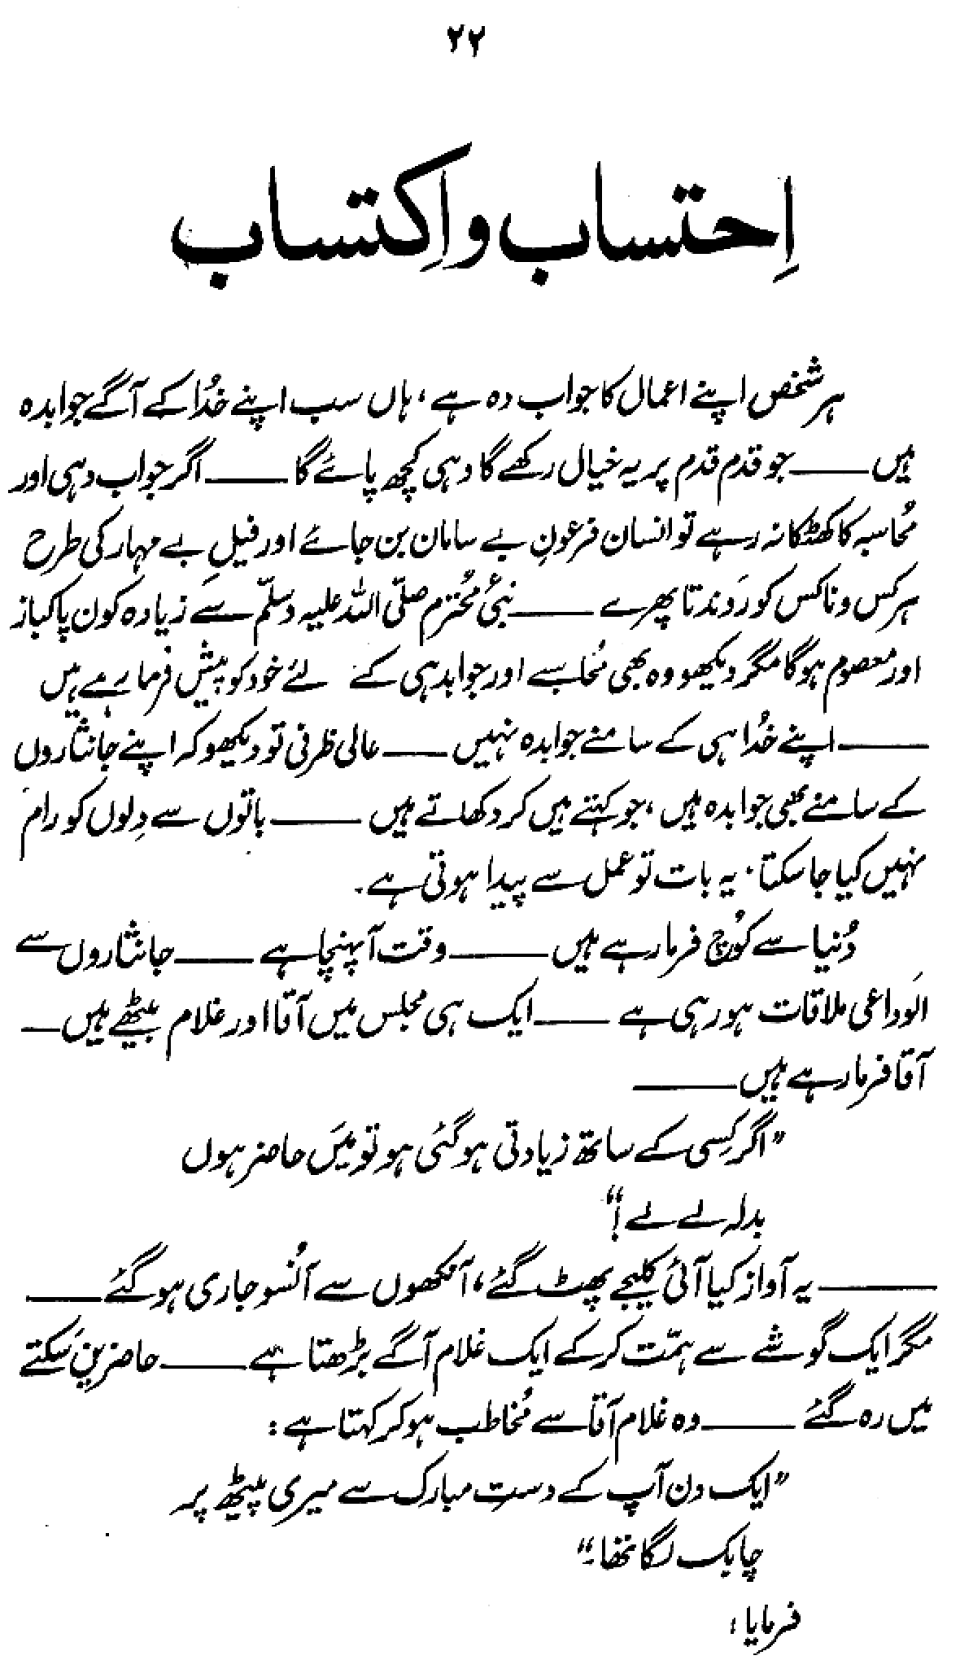 ۲۲
اِحتساب و اِکتساب
ہر شخص اپنے اعمال کا جواب دہ ہے، ہاں سب اپنے خُدا کے آگے جوابدہ
ہیں ——— جو قدم قدم پر یہ خیال رکھے گا وہی کچھ پائے گا ——— اگر جواب دہی اور
مُحاسبہ کا کھٹکا نہ رہے تو انسان فرعونِ بے سامان بن جائے اور فیلِ بے مہار کی طرح
ہر کس و ناکس کو رَوندتا پھرے ——— نبیٔ مُحترم صلّی اللہ علیہ وسلّم سے زیادہ کون پاکباز
اور معصوم ہوگا مگر دیکھو وہ بھی مُحاسبے اور جوابدہی کے لئے خود کو پیش فرما رہے ہیں
——— اپنے خُدا ہی کے سامنے جوابدہ نہیں ——— عالی ظرفی تو دیکھو کہ اپنے جانثاروں
کے سامنے بھی جوابدہ ہیں، جو کہتے ہیں کر دکھاتے ہیں ——— باتوں سے دِلوں کو رام
نہیں کیا جا سکتا، یہ بات تو عمل سے پیدا ہوتی ہے۔
دُنیا سے کُوچ فرما رہے ہیں ——— وقت آ پہنچا ہے ——— جانثاروں سے
الوَداعی ملاقات ہو رہی ہے ——— ایک ہی مجلس میں آقا اور غلام بیٹھے ہیں —
آقا فرما رہے ہیں ———
”اگر کِسی کے ساتھ زیادتی ہو گئی ہو تو مَیں حاضر ہوں
بدلہ لے لے!“
——— یہ آواز کیا آئی کلیجے پھٹ گئے، آنکھوں سے آنُسو جاری ہو گئے ———
مگر ایک گوشے سے ہمّت کر کے ایک غلام آگے بڑھتا ہے ——— حاضرین سَکتے
میں رہ گئے ——— وہ غلام آقا سے مُخاطب ہو کر کہتا ہے:
”ایک دن آپ کے دستِ مبارک سے میری پیٹھ پر
چابک لگا تھا۔“
فرمایا: